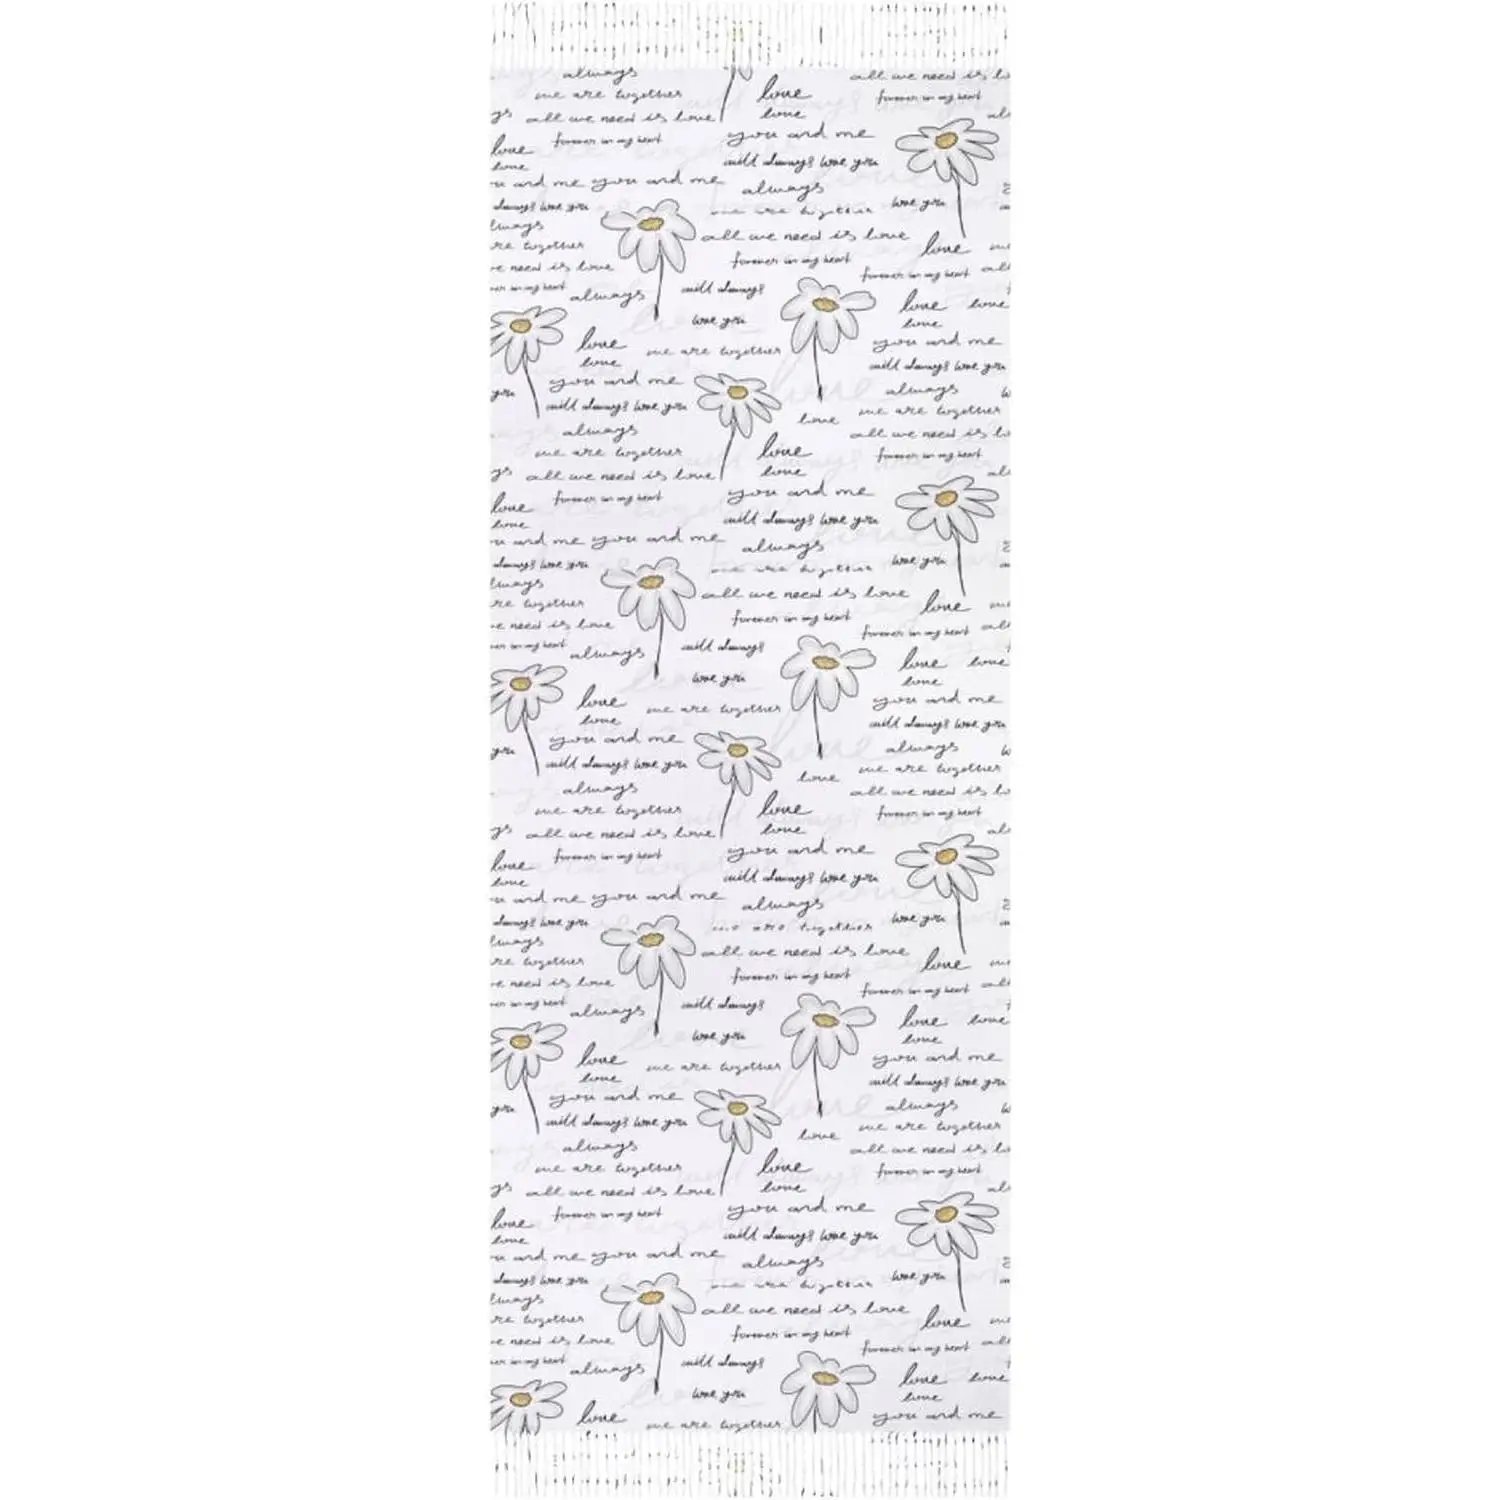 always
all we need is lo
we are together
love
forever in my heart
ys
all we need is love
love
al
love
forever in my heart
you and me
love
will always love you
u and me you and me
always
always love you
we are together
love you
lways
all we need is love
re together
love
we
e need is love
forever in my heart
forever in my heart
all
er in my heart
always
will always
love
love
love you
love
love
love
we are together
you and me
you
you and me
will always love you
will always love you
always
always
love
we are together
we are together
love
all we need is lo
ys
all we need is love
love
forever in my heart
al
love
forever in my heart
you and me
love
will always love you
u and me you and me
always
always love you
we are together
love you
lways
all we need is love
re together
love
we
e need is love
forever in my heart
forever in my heart
all
er in my heart
always
will always
love
love
love you
love
love
love
we are together
you and me
you
you and me
will always love you
will always love you
always
always
love
we are together
we are together
love
all we need is lo
ys
all we need is love
love
forever in my heart
al
love
forever in my heart
you and me
love
will always love you
u and me you and me
always
always love you
we are together
love you
lways
all we need is love
re together
love
we
e need is love
forever in my heart
forever in my heart
all
er in my heart
always
will always
love
love
love you
love
love
love
we are together
you and me
you
you and me
will always love you
will always love you
always
always
love
we are together
we are together
love
all we need is lo
ys
all we need is love
love
forever in my heart
al
love
forever in my heart
you and me
love
will always love you
u and me you and me
always
always love you
we are together
love you
lways
all we need is love
re together
love
we
e need is love
forever in my heart
forever in my heart
all
er in my heart
always
will always
love
love
love you
love
love
we are together
you and me